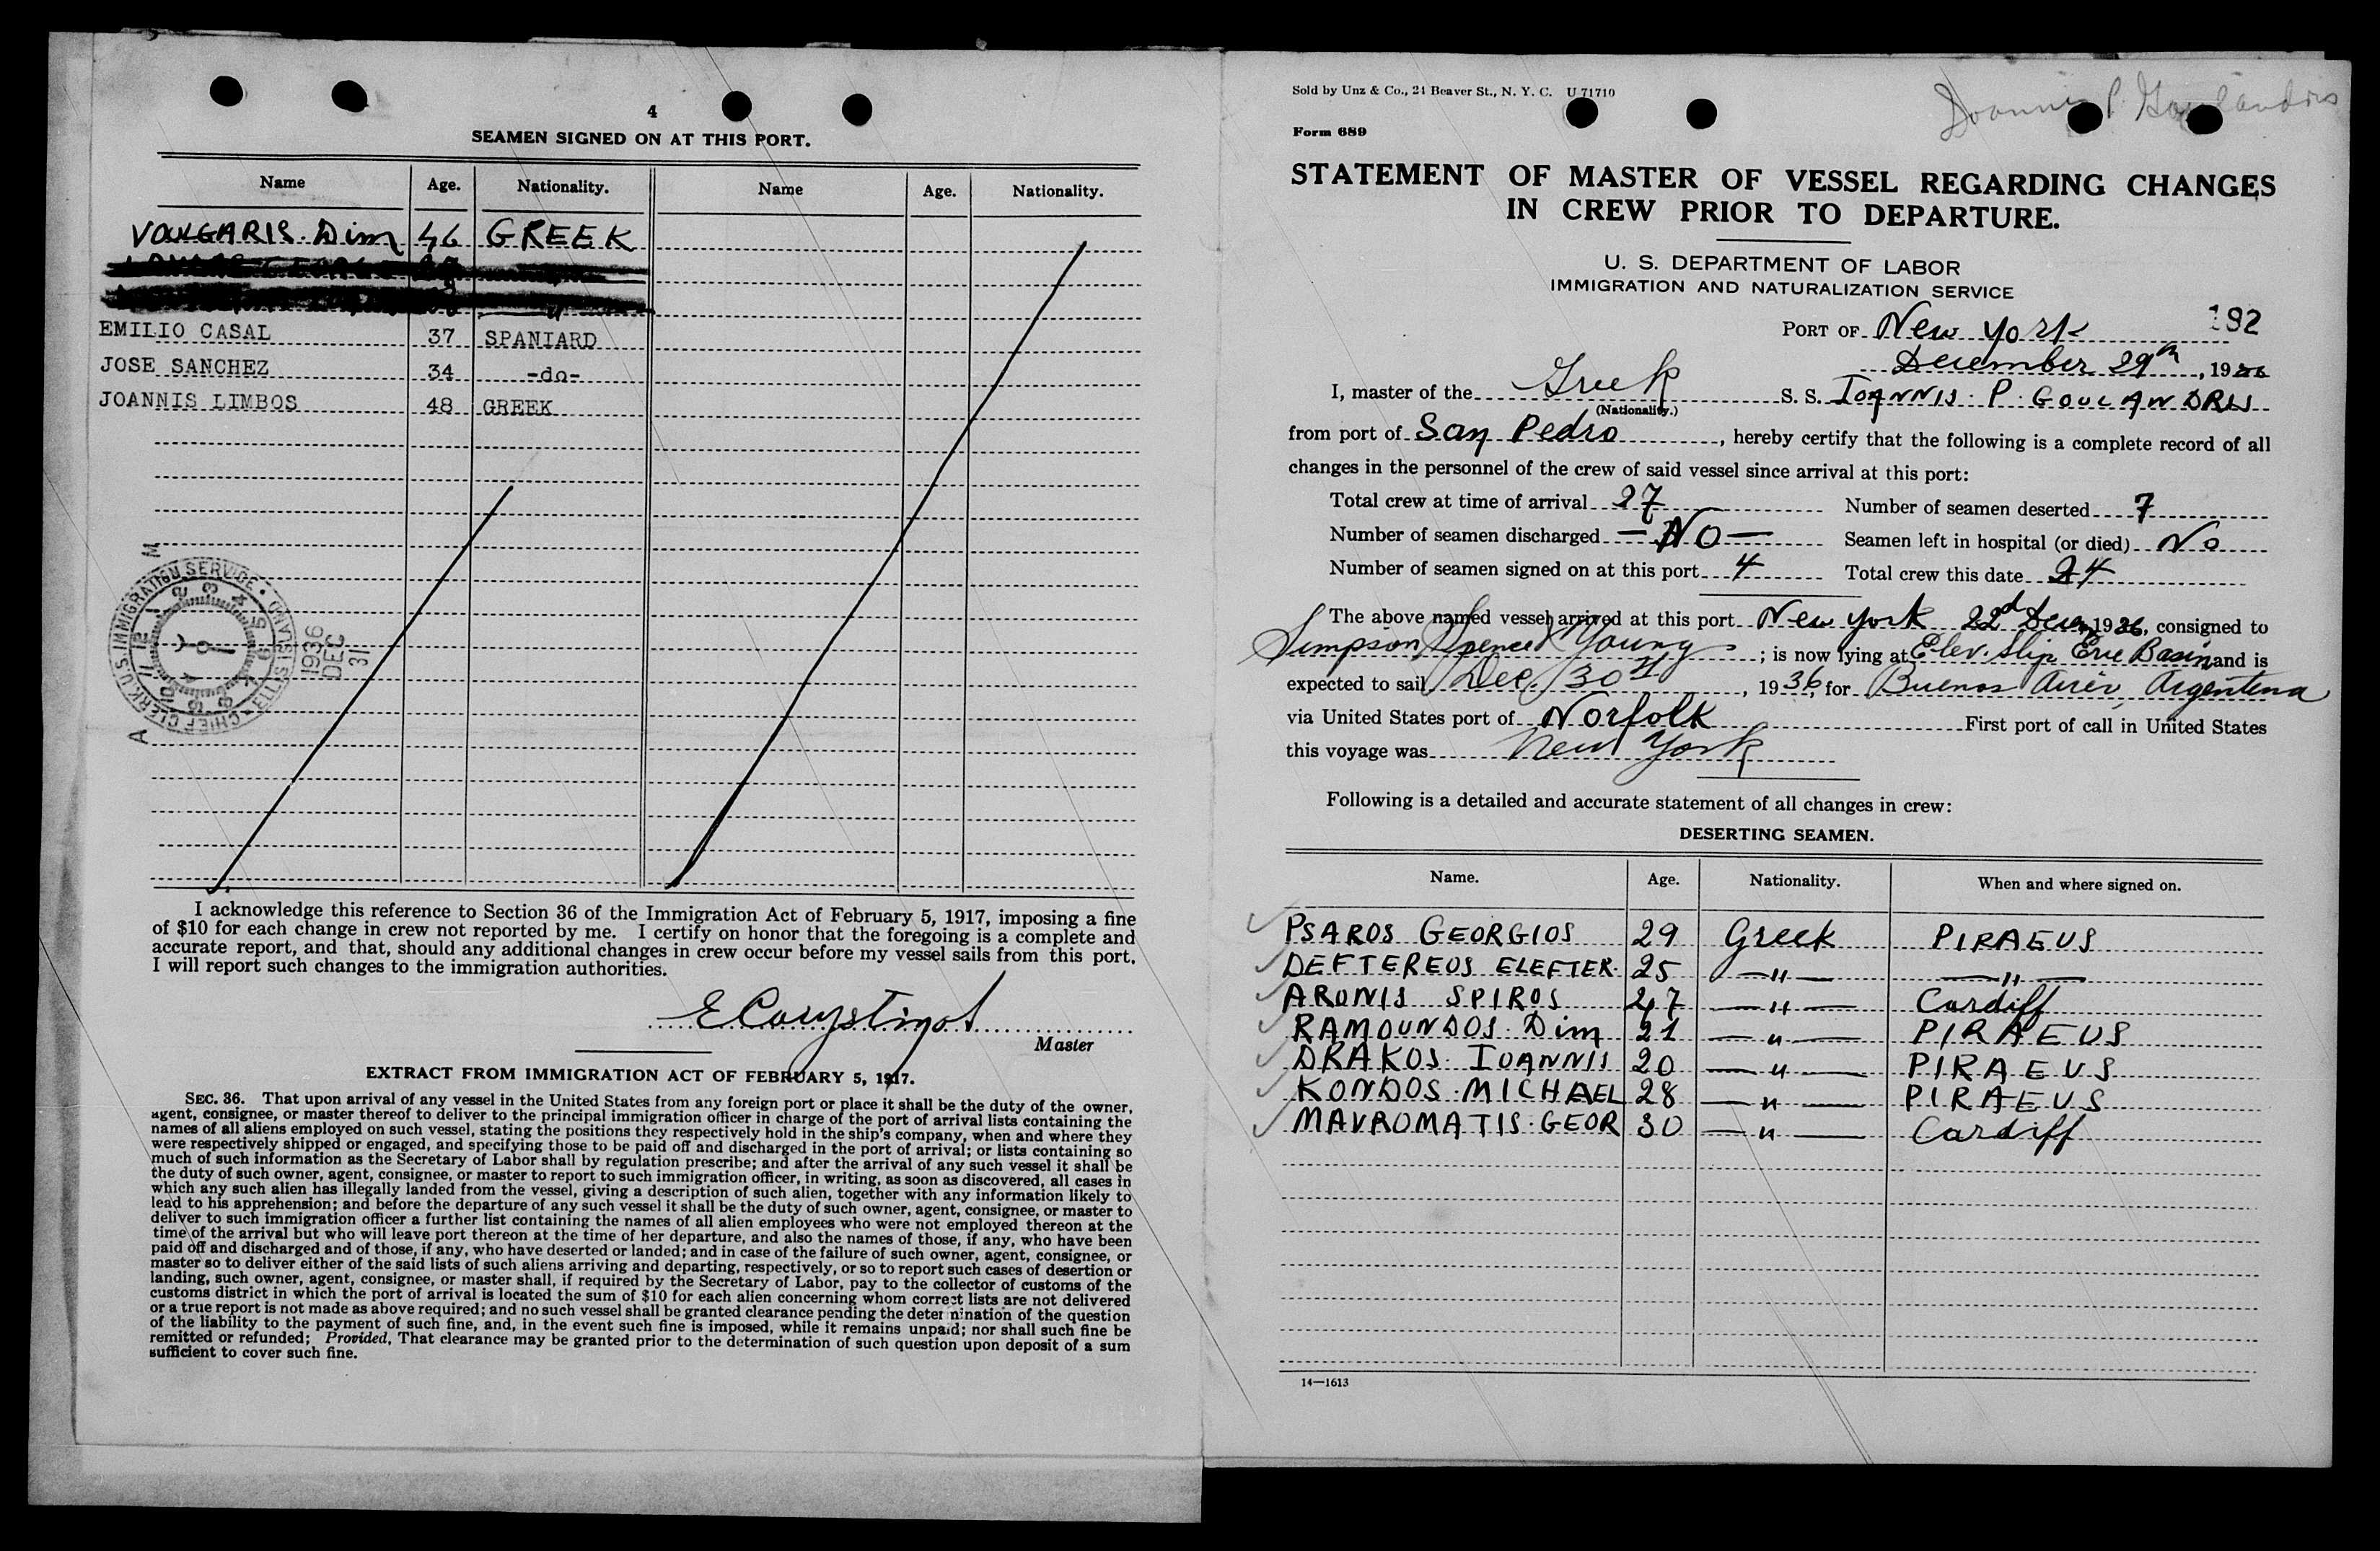 4
SEAMEN SIGNED ON AT THIS PORT.
Name Age. Nationality. Name Age. Nationality.
VOULGARIS. Dim 46 GREEK
EMILIO CASAL 37 SPANIARD
JOSE SANCHEZ 34 -do-
JOANNIS LIMBOS 48 GREEK
CHIEF CLERK U.S. IMMIGRATION SERVICE • ELLIS ISLAND •
1936
DEC
31
I acknowledge this reference to Section 36 of the Immigration Act of February 5, 1917, imposing a fine
of $10 for each change in crew not reported by me. I certify on honor that the foregoing is a complete and
accurate report, and that, should any additional changes in crew occur before my vessel sails from this port,
I will report such changes to the immigration authorities.
Master
EXTRACT FROM IMMIGRATION ACT OF FEBRUARY 5, 1917.
SEC. 36. That upon arrival of any vessel in the United States from any foreign port or place it shall be the duty of the owner,
agent, consignee, or master thereof to deliver to the principal immigration officer in charge of the port of arrival lists containing the
names of all aliens employed on such vessel, stating the positions they respectively hold in the ship's company, when and where they
were respectively shipped or engaged, and specifying those to be paid off and discharged in the port of arrival; or lists containing so
much of such information as the Secretary of Labor shall by regulation prescribe; and after the arrival of any such vessel it shall be
the duty of such owner, agent, consignee, or master to report to such immigration officer, in writing, as soon as discovered, all cases in
which any such alien has illegally landed from the vessel, giving a description of such alien, together with any information likely to
lead to his apprehension; and before the departure of any such vessel it shall be the duty of such owner, agent, consignee, or master to
deliver to such immigration officer a further list containing the names of all alien employees who were not employed thereon at the
time of the arrival but who will leave port thereon at the time of her departure, and also the names of those, if any, who have been
paid off and discharged and of those, if any, who have deserted or landed; and in case of the failure of such owner, agent, consignee, or
master so to deliver either of the said lists of such aliens arriving and departing, respectively, or so to report such cases of desertion or
landing, such owner, agent, consignee, or master shall, if required by the Secretary of Labor, pay to the collector of customs of the
customs district in which the port of arrival is located the sum of $10 for each alien concerning whom correct lists are not delivered
or a true report is not made as above required; and no such vessel shall be granted clearance pending the determination of the question
of the liability to the payment of such fine, and, in the event such fine is imposed, while it remains unpaid; nor shall such fine be
remitted or refunded; Provided, That clearance may be granted prior to the determination of such question upon deposit of a sum
sufficient to cover such fine.
Sold by Unz & Co., 24 Beaver St., N. Y. C. U 71710
Joannis P. Goulandris
Form 689
STATEMENT OF MASTER OF VESSEL REGARDING CHANGES
IN CREW PRIOR TO DEPARTURE.
U. S. DEPARTMENT OF LABOR
IMMIGRATION AND NATURALIZATION SERVICE
192
PORT OF New York
December 29th, 1936
I, master of the Greek S. S. IOANNIS. P. GOULANDRIS
(Nationality.)
from port of San Pedro, hereby certify that the following is a complete record of all
changes in the personnel of the crew of said vessel since arrival at this port:
Total crew at time of arrival 27 Number of seamen deserted 7
Number of seamen discharged — No — Seamen left in hospital (or died) No
Number of seamen signed on at this port 4 Total crew this date 24
The above named vessel arrived at this port New York 22d Decem, 1936, consigned to
Simpson Spence & Young; is now lying at Elev. Slip Erie Basin and is
expected to sail Dec. 30th, 1936, for Buenos Aires, Argentina
via United States port of Norfolk First port of call in United States
this voyage was New York
Following is a detailed and accurate statement of all changes in crew:
DESERTING SEAMEN.
Name. Age. Nationality. When and where signed on.
PSAROS GEORGIOS 29 Greek PIRAEUS
DEFTEREOS ELEFTER. 25 —"— —"—
ARONIS SPIROS 47 —"— Cardiff
RAMOUNDOS. Dim 21 —"— PIRAEUS
DRAKOS IOANNIS 20 —"— PIRAEUS
KONDOS. MICHAEL 28 —"— PIRAEUS
MAVROMATIS. GEOR 30 —"— Cardiff
14—1613